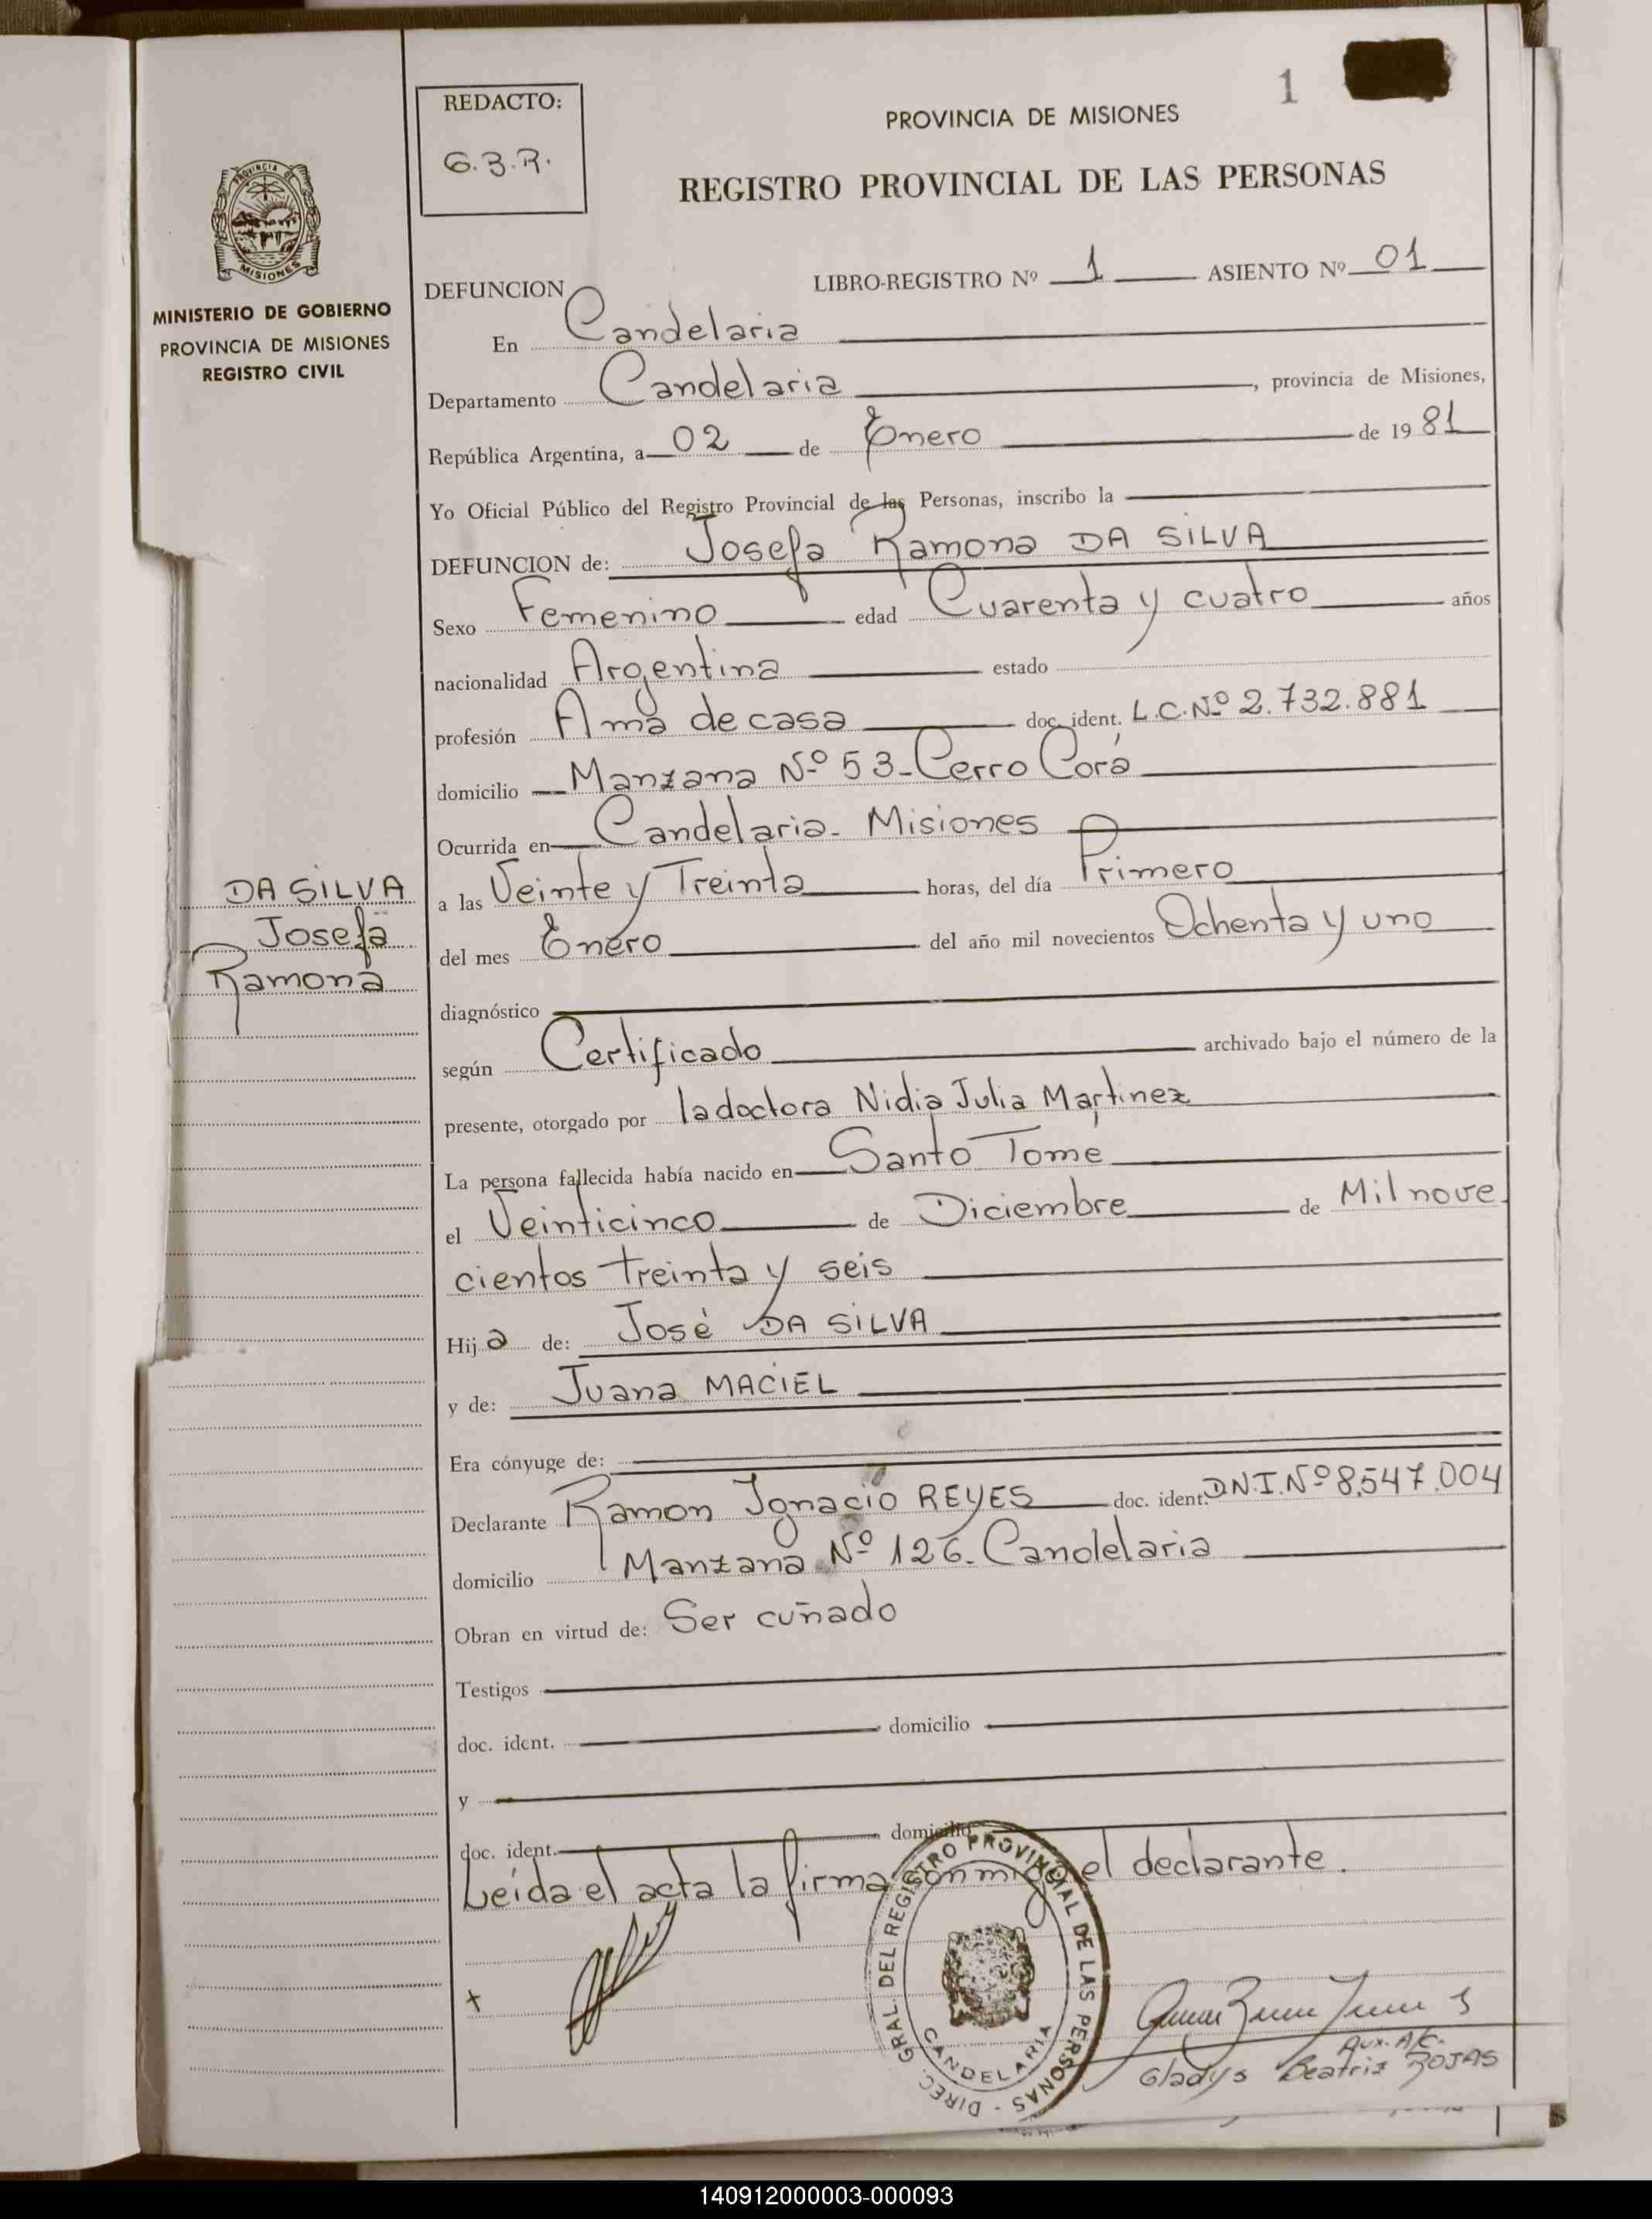 1
REDACTO:
G.B.R.
PROVINCIA DE MISIONES
REGISTRO PROVINCIAL DE LAS PERSONAS
PROVINCIA DE
MISIONES
MINISTERIO DE GOBIERNO
PROVINCIA DE MISIONES
REGISTRO CIVIL
DEFUNCION LIBRO-REGISTRO Nº 1 ASIENTO Nº 01
En Candelaria
Departamento Candelaria, provincia de Misiones,
República Argentina, a 02 de Enero de 1981
Yo Oficial Público del Registro Provincial de las Personas, inscribo la
DEFUNCION de: Josefa Ramona DA SILVA
Sexo Femenino edad Cuarenta y cuatro años
nacionalidad Argentina estado
profesión Ama de casa doc. ident. L.C.Nº 2.732.881
domicilio Manzana Nº 53-Cerro Corá
Ocurrida en Candelaria-Misiones
DA SILVA
Josefa
Ramona
a las Veinte y Treinta horas, del día Primero
del mes Enero del año mil novecientos Ochenta y uno
diagnóstico
según Certificado archivado bajo el número de la
presente, otorgado por la doctora Nidia Julia Martinez
La persona fallecida había nacido en Santo Tomé
el Veinticinco de Diciembre de Mil nove
cientos treinta y seis
Hija de: José DA SILVA
y de: Juana MACIEL
Era cónyuge de:
Declarante Ramon Ignacio REYES doc. ident. D.N.I.Nº 8.547.004
domicilio Manzana Nº 126-Candelaria
Obran en virtud de: Ser cuñado
Testigos
doc. ident. domicilio
y
doc. ident. domicilio
Leída el acta la firma conmigo el declarante.
DIREC. GRAL. DEL REGISTRO PROVINCIAL DE LAS PERSONAS -
CANDELARIA
Aux. A/C.
Gladys Beatriz ROJAS
140912000003-000093